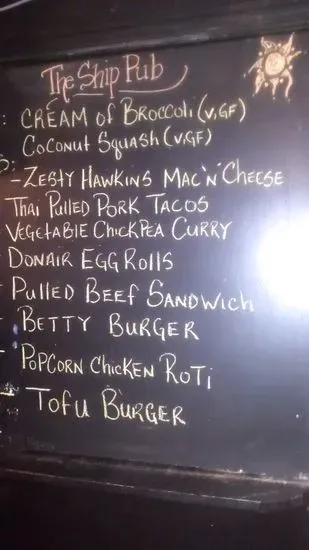 The Ship Pub
: CREAM of BROCCOLI (V,GF)
COCONUT SQUASH (V,GF)
S:
- ZESTY HAWKINS MAC 'N' CHEESE
THAI PULLED PORK TACOS
VEGETABLE CHICKPEA CURRY
DONAIR EGG ROLLS
- PULLED BEEF SANDWICH
- BETTY BURGER
- POPCORN CHICKEN ROTI
TOFU BURGER